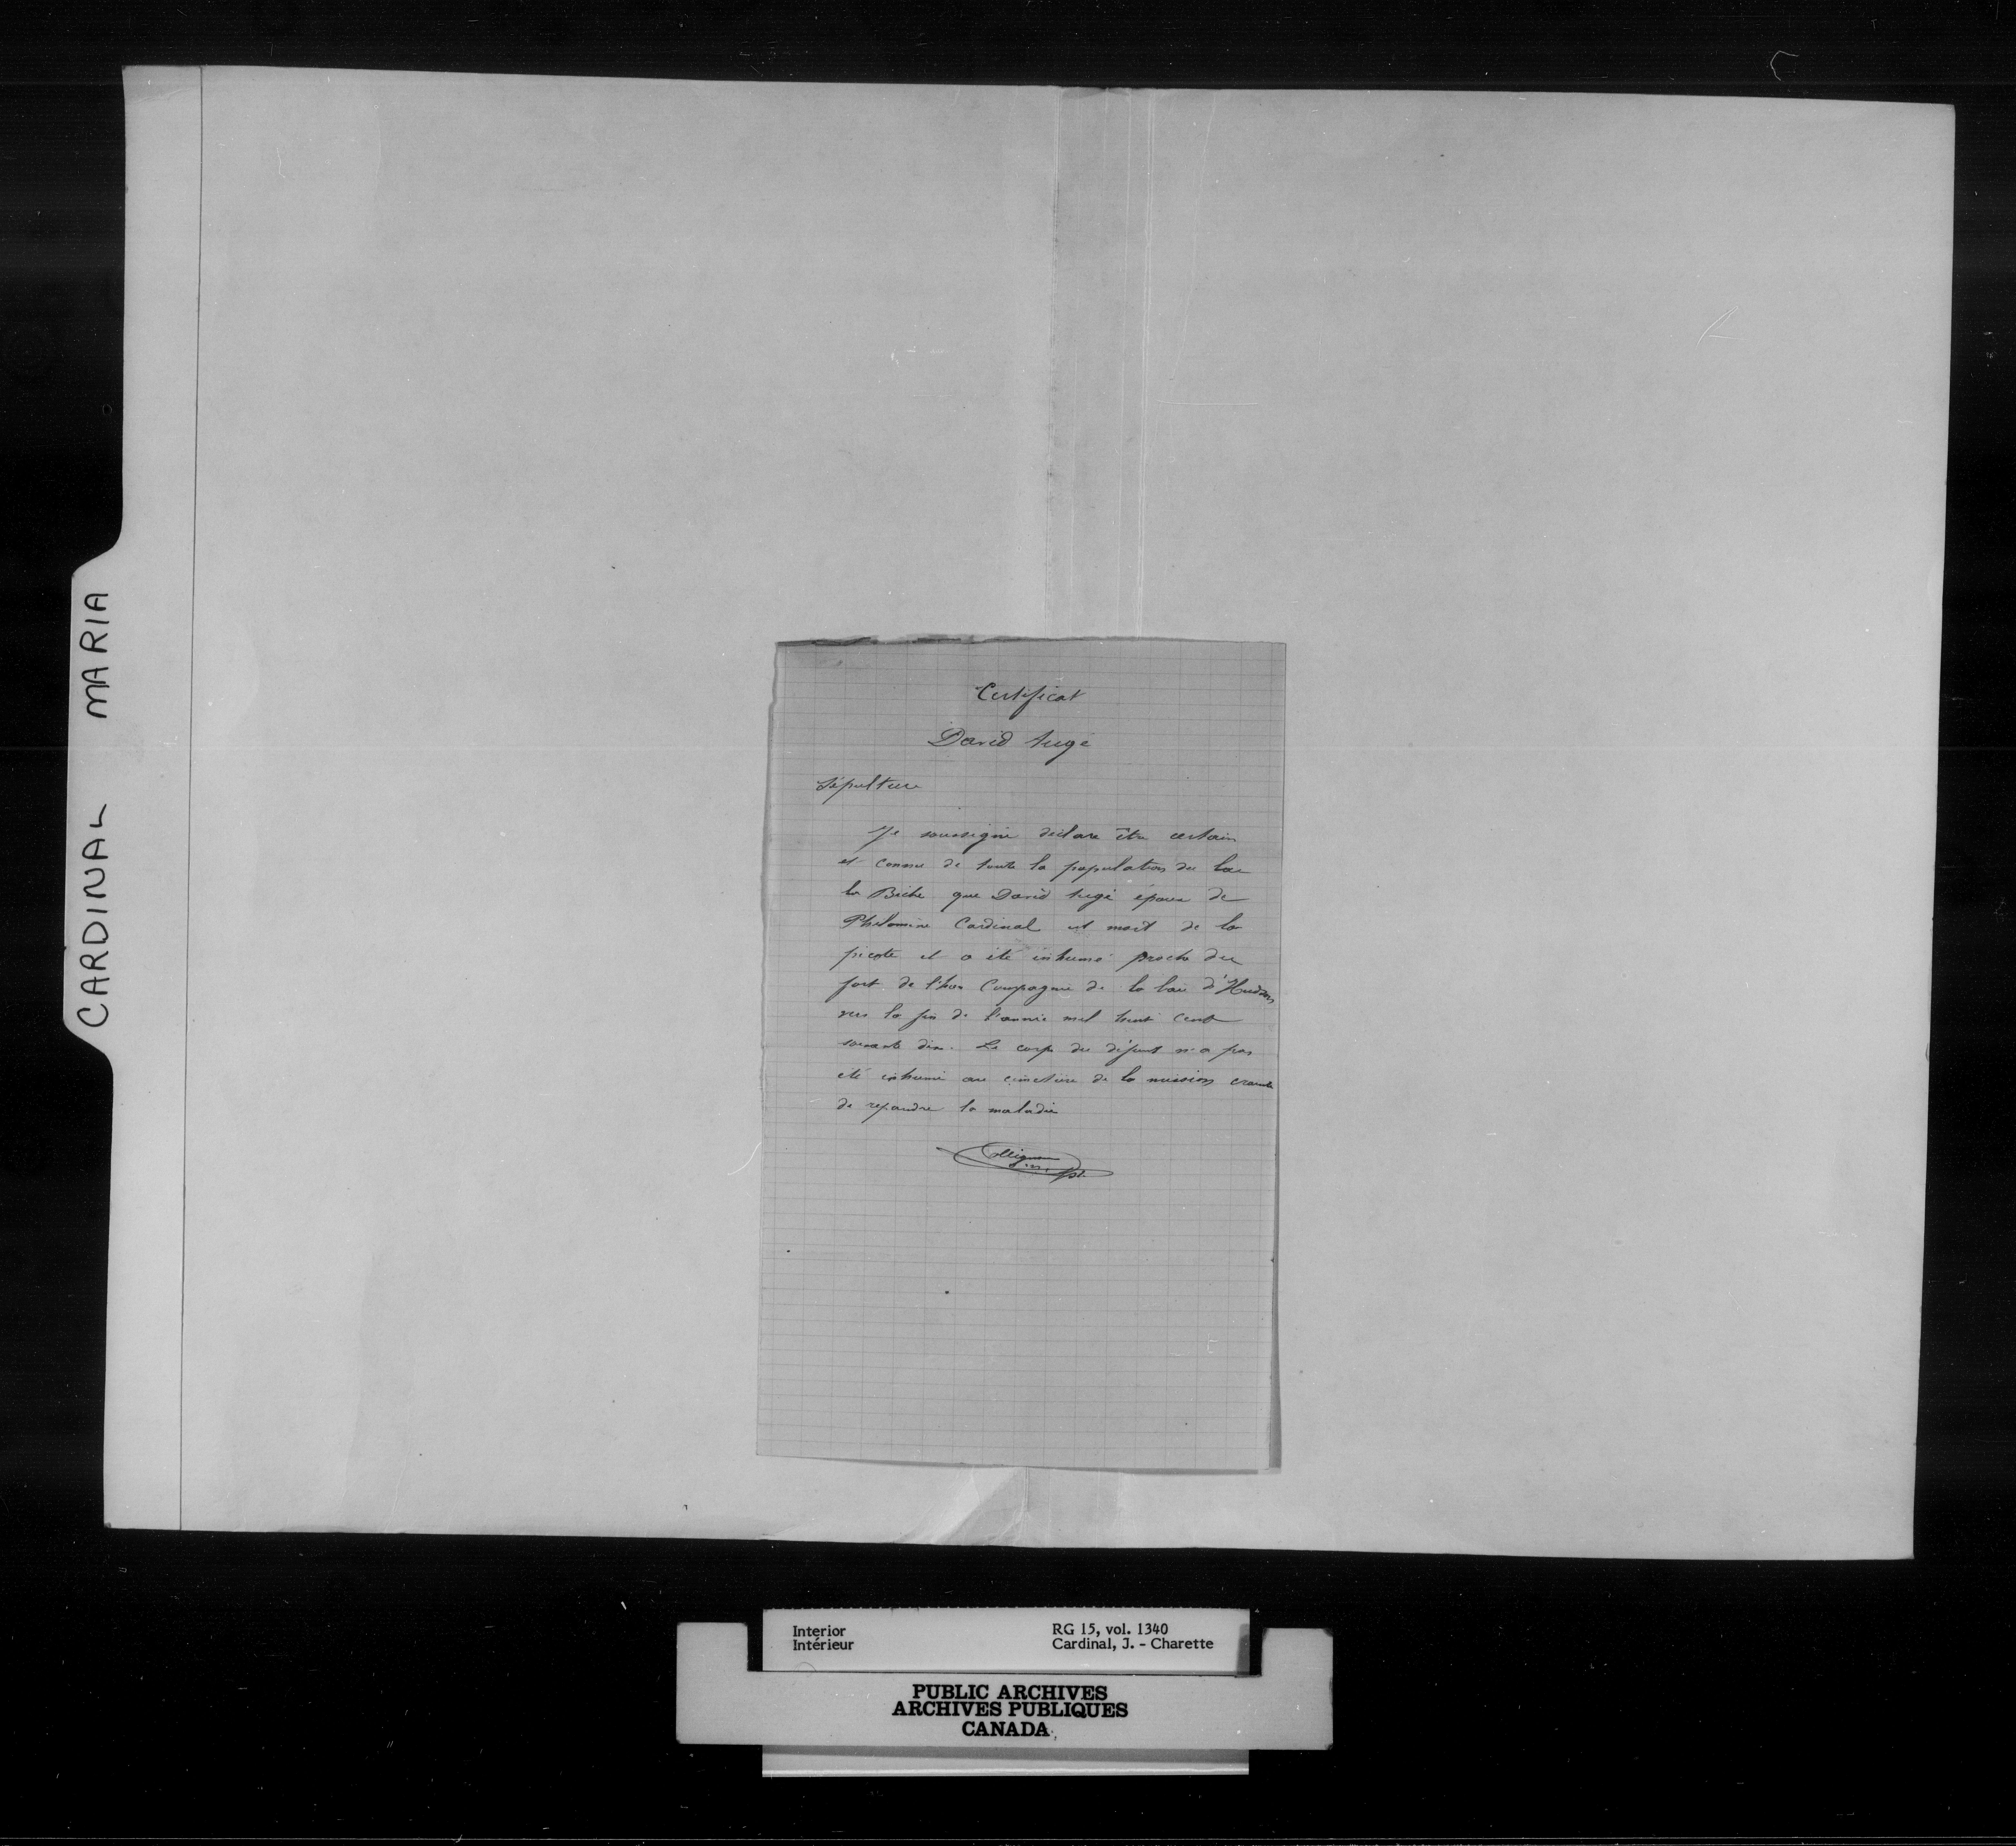 CARDINAL MARIA
Certificat
David Augé
Sépulture
Je soussigné déclare être certain
et connu de toute la population du lac
la Biche que David Augé époux de
Philomène Cardinal est mort de la
picote et a été inhumé proche du
fort de l'hon Compagnie de la baie d'Hudson
vers la fin de l'année mil huit cent
soixante dix. Le corps du défunt n'a pas
été inhumé au cimetière de la mission crainte
de repandre la maladie
Collignon
Interior
Intérieur
RG 15, vol. 1340
Cardinal, J. - Charette
PUBLIC ARCHIVES
ARCHIVES PUBLIQUES
CANADA